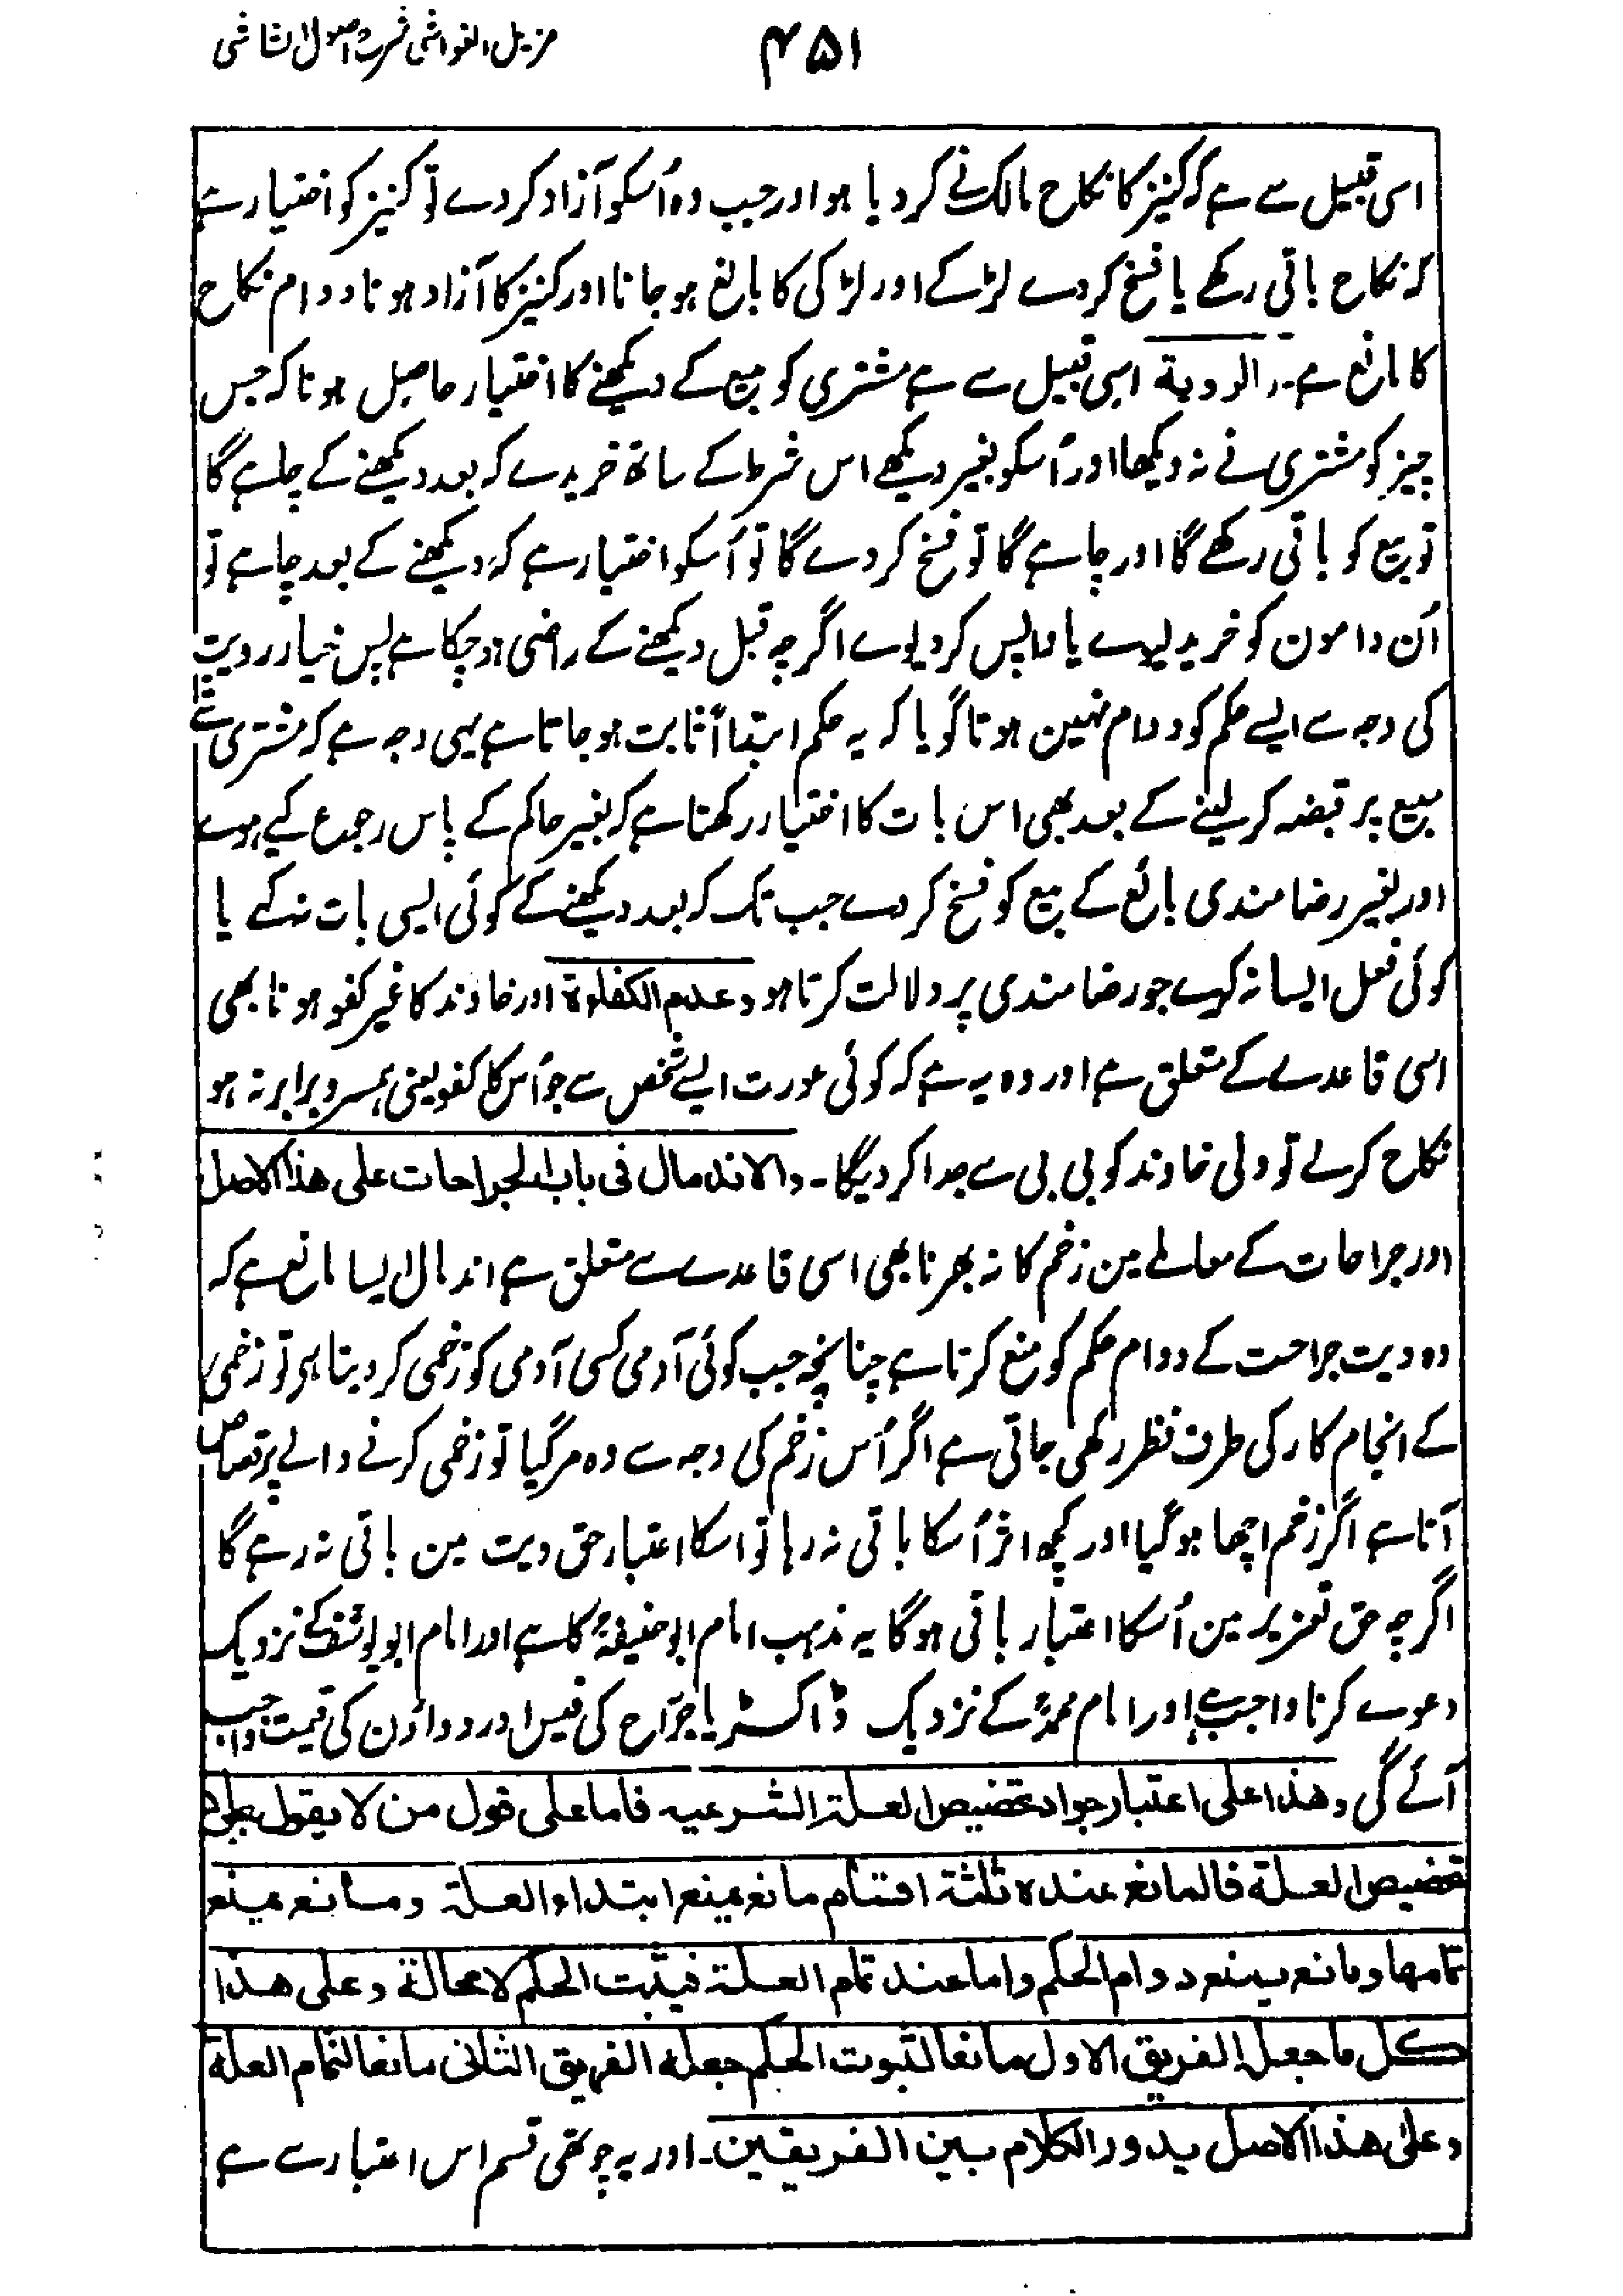 ۴۵۱
مزیل الغواشی شرح اصول الشاشی
اسی قبیل سے ہے کہ کنیز کا نکاح مالک نے کر دیا ہو اور جب وہ اُسکو آزاد کر دے تو کنیز کو اختیار ہے
کہ نکاح باقی رکھے یا فسخ کردے لڑکے اور لڑکی کا بالغ ہو جانا اور کنیز کا آزاد ہونا دوام نکاح
کا مانع ہے۔ والروية اسی قبیل سے ہے مشتری کو مبیع کے دیکھنے کا اختیار حاصل ہونا کہ جس
چیز کو مشتری نے نہ دیکھا اور اُسکو بغیر دیکھے اس شرط کے ساتھ خریدے کہ بعد دیکھنے کے چاہے گا
تو بیع کو باقی رکھے گا اور چاہے گا تو فسخ کر دے گا تو اُسکو اختیار ہے کہ دیکھنے کے بعد چاہے تو
اُن دامون کو خرید لیوے یا واپس کر دیوے اگرچہ قبل دیکھنے کے راضی ہو چکا ہے پس خیار رویت
کی وجہ سے ایسے حکم کو دوام نہین ہوتا گویا کہ یہ حکم ابتداءً ثابت ہو جاتا ہے یہی وجہ ہے کہ مشتری نے
مبیع پر قبضہ کر لینے کے بعد بھی اس بات کا اختیار رکھتا ہے کہ بغیر حاکم کے پاس رجوع کیے ہوے
اور بغیر رضامندی بائع کے بیع کو فسخ کر دے جب تک کہ بعد دیکھنے کے کوئی ایسی بات نہ کہے یا
کوئی فعل ایسا نہ کرے جو رضامندی پر دلالت کرتا ہو وعدم الكفاءة اور خاوند کا غیر کفو ہونا بھی
اسی قاعدے کے متعلق ہے اور وہ یہ ہے کہ کوئی عورت ایسے شخص سے جو اُس کا کفو یعنی ہمسر و برابر نہ ہو
نکاح کر لے تو ولی خاوند کو بی بی سے جدا کر دیگا۔ والاندمال فى باب الجراحات على هذا الاصل
اور جراحات کے معاملے مین زخم کا نہ بھرنا بھی اسی قاعدے سے متعلق ہے اندمال ایسا مانع ہے کہ
وہ دیت جراحت کے دوام حکم کو منع کرتا ہے چنانچہ جب کوئی آدمی کسی آدمی کو زخمی کر دیتا ہی تو زخمی
کے انجام کار کی طرف نظر رکھی جاتی ہے اگر اُس زخم کی وجہ سے وہ مر گیا تو زخمی کرنے والے پر قصاص
آتا ہے اگر زخم اچھا ہو گیا اور کچھ اثر اُسکا باقی نہ رہا تو اسکا اعتبار حق دیت مین باقی نہ رہے گا
اگرچہ حق تعزیر مین اُسکا اعتبار باقی ہوگا یہ مذہب امام ابو حنیفہؒ کا ہے اور امام ابو یوسفؒ کے نزدیک
دعوے کرنا واجب ہے اور امام محمدؒ کے نزدیک ڈاکٹر یا جرّاح کی فیس اور دواؤن کی قیمت واجب
آئے گی وهذا على اعتبار جواز تخصيص العلة الشرعيه فاما على قول من لا يقول بجواز
تخصيص العلة فالمانع عنده ثلثة اقسام مانع يمنع ابتداء العلة ومانع يمنع
تمامها ومانع يمنع دوام الحكم واما عند تمام العلة فيثبت الحكم لا محالة وعلى هذا
كل ما جعل الفريق الاول مانعا لثبوت الحكم جعله الفريق الثانى مانعا لتمام العلة
وعلى هذا الاصل يدور الكلام بين الفريقين۔ اور یہ چوتھی قسم اس اعتبار سے ہے